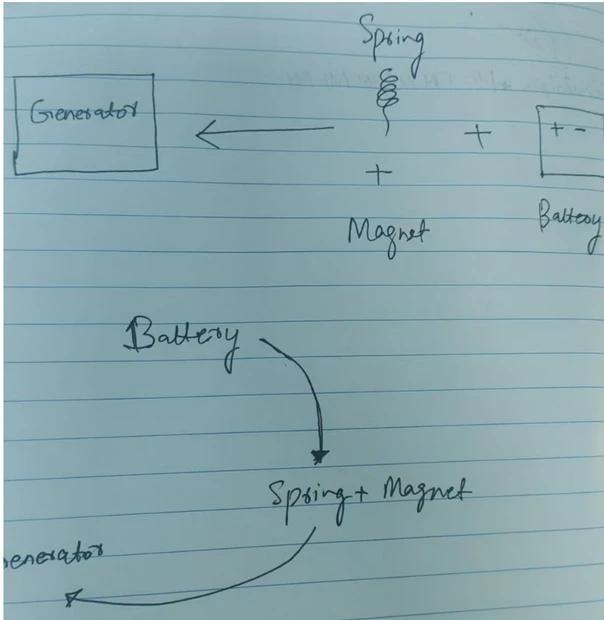 Spring
Generator
+
+ -
+
Magnet
Battery
Battery
Spring + Magnet
enerator